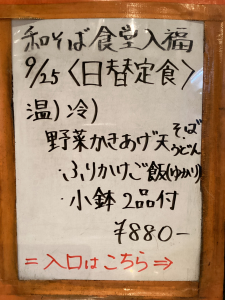 和そば食堂入福
9/25〈日替定食〉
温)冷)
野菜かきあげ天そば
うどん
・ふりかけご飯(ゆかり)
・小鉢2品付
¥880-
=入口はこちら⇒